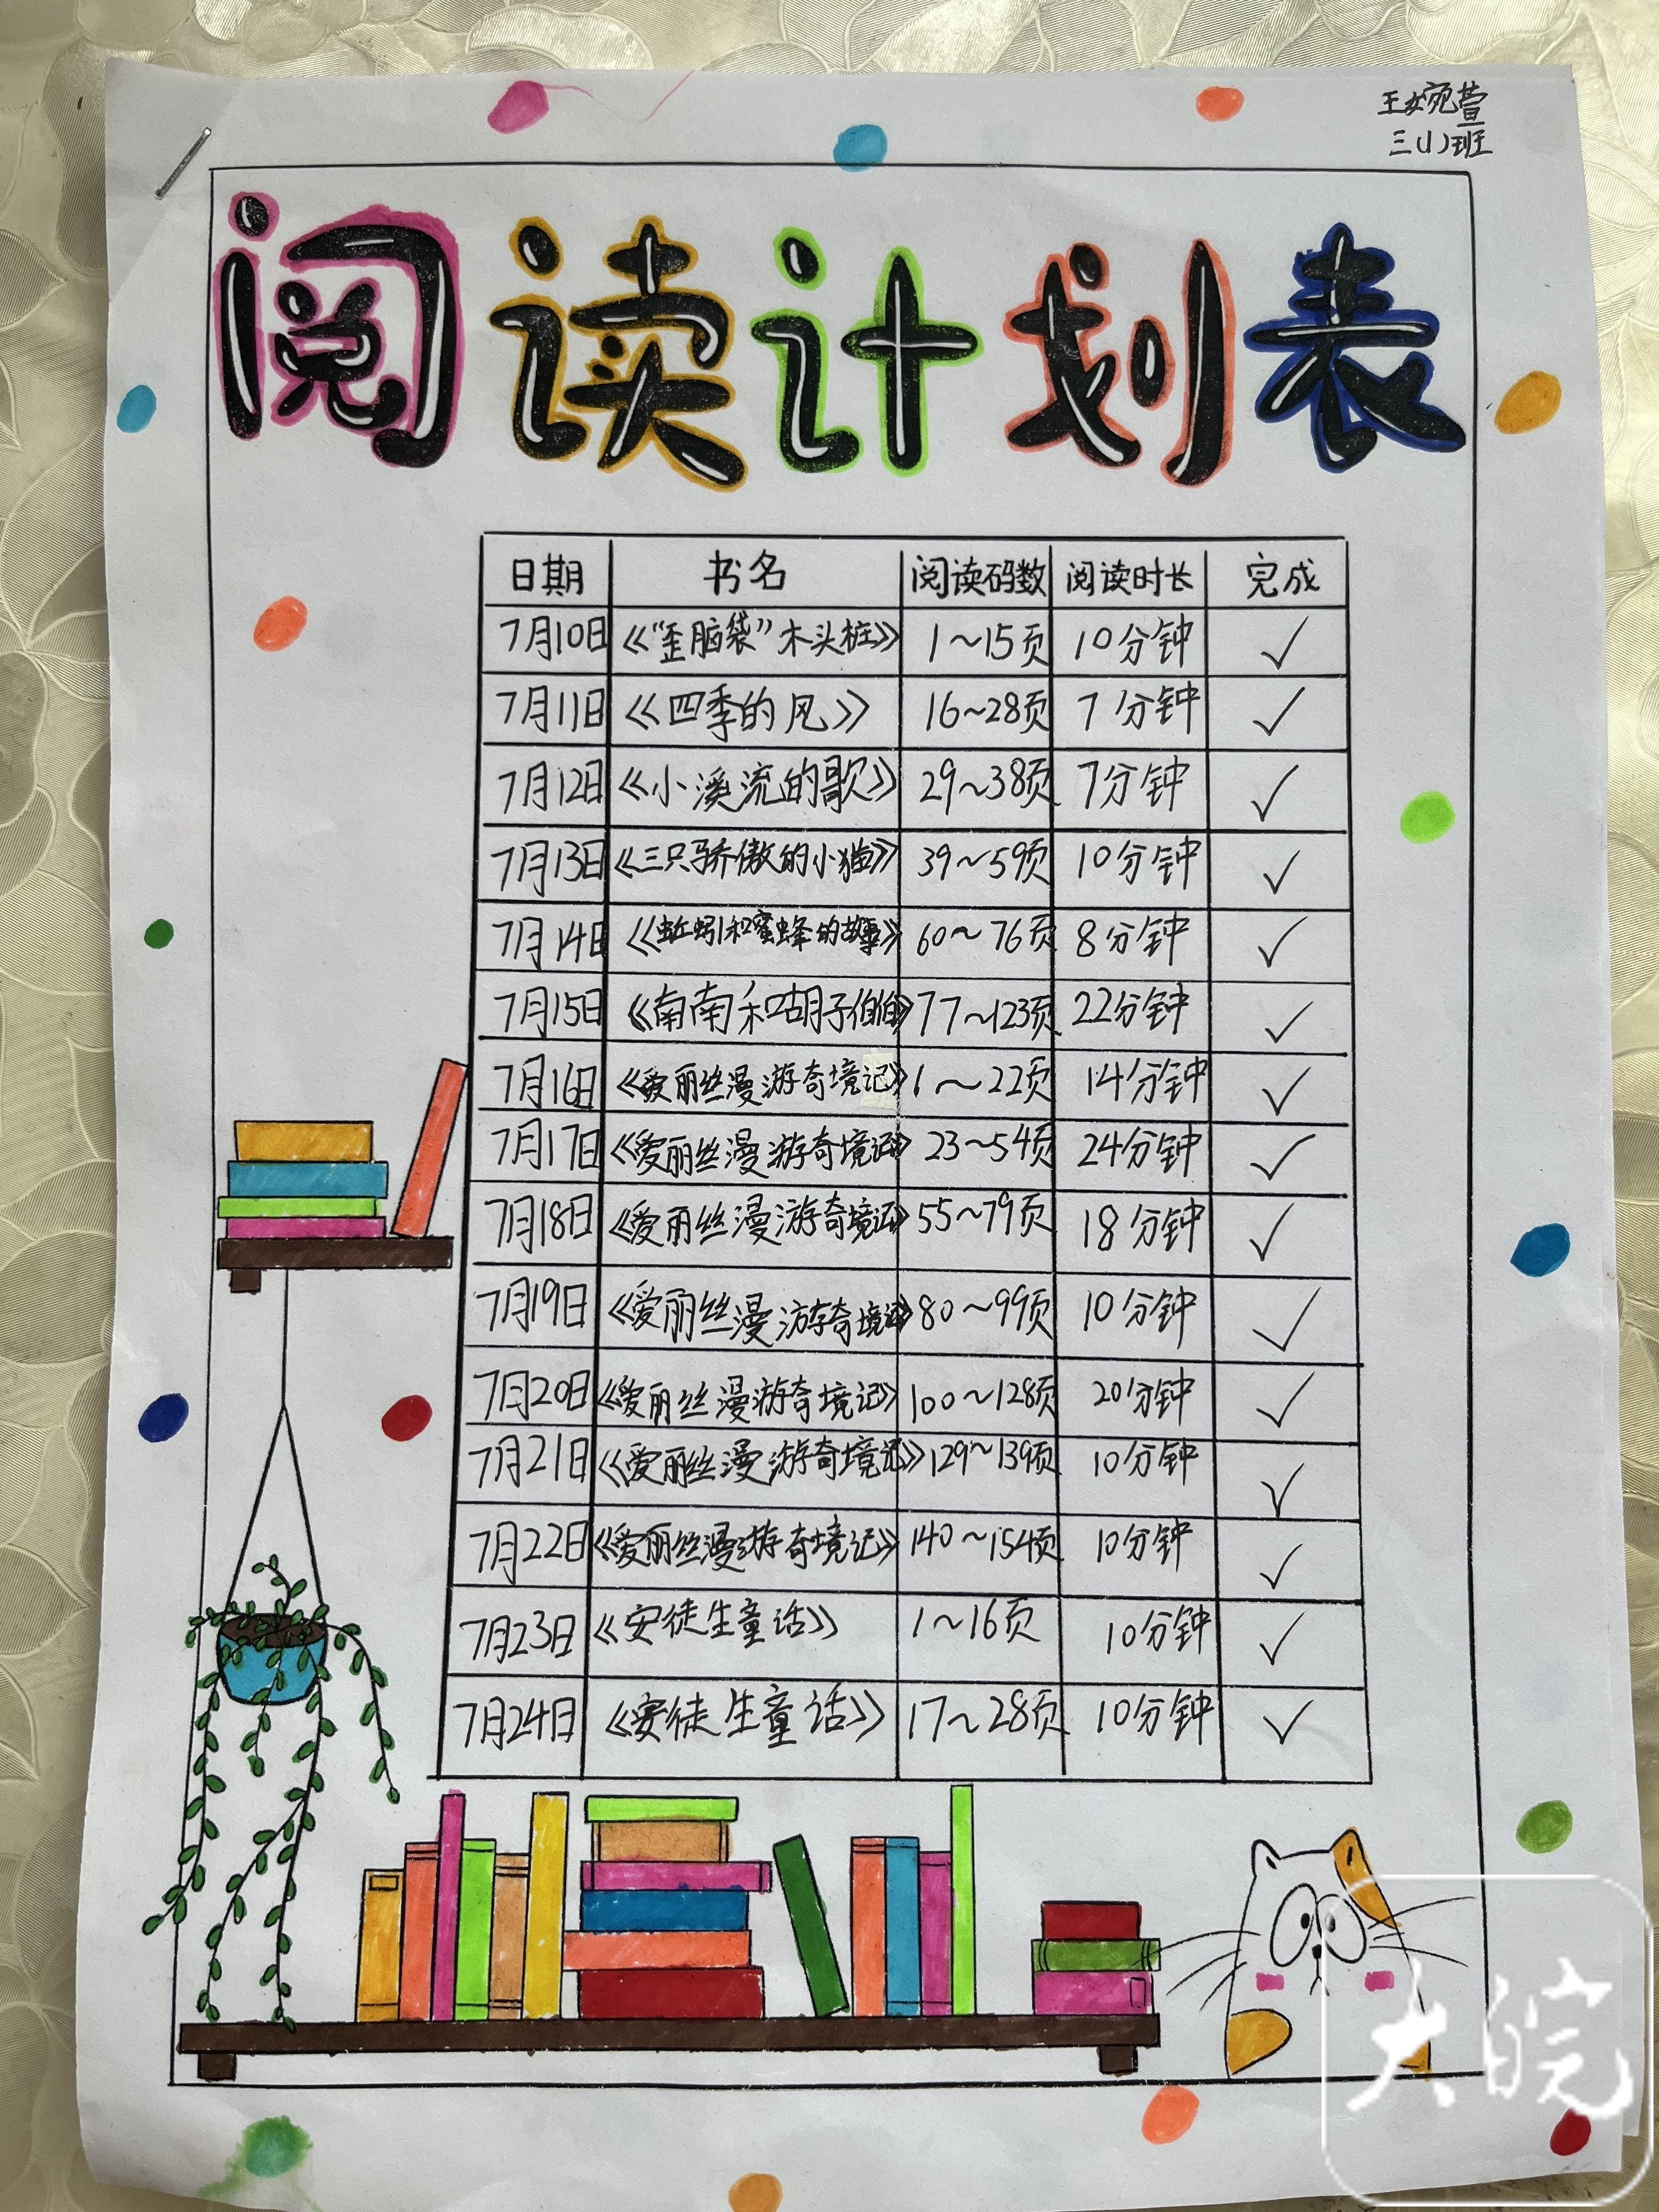 王婉萱
三(1)班
阅读计划表
日期 书名 阅读码数 阅读时长 完成
7月10日 《“歪脑袋”木头桩》 1~15页 10分钟 ✓
7月11日 《四季的风》 16~28页 7分钟 ✓
7月12日 《小溪流的歌》 29~38页 7分钟 ✓
7月13日 《三只骄傲的小猫》 39~59页 10分钟 ✓
7月14日 《蚯蚓和蜜蜂的故事》 60~76页 8分钟 ✓
7月15日 《南南和胡子伯伯》 77~123页 22分钟 ✓
7月16日 《爱丽丝漫游奇境记》 1~22页 14分钟 ✓
7月17日 《爱丽丝漫游奇境记》 23~54页 24分钟 ✓
7月18日 《爱丽丝漫游奇境记》 55~79页 18分钟 ✓
7月19日 《爱丽丝漫游奇境记》 80~99页 10分钟 ✓
7月20日 《爱丽丝漫游奇境记》 100~128页 20分钟 ✓
7月21日 《爱丽丝漫游奇境记》 129~139页 10分钟 ✓
7月22日 《爱丽丝漫游奇境记》 140~154页 10分钟 ✓
7月23日 《安徒生童话》 1~16页 10分钟 ✓
7月24日 《安徒生童话》 17~28页 10分钟 ✓
大皖